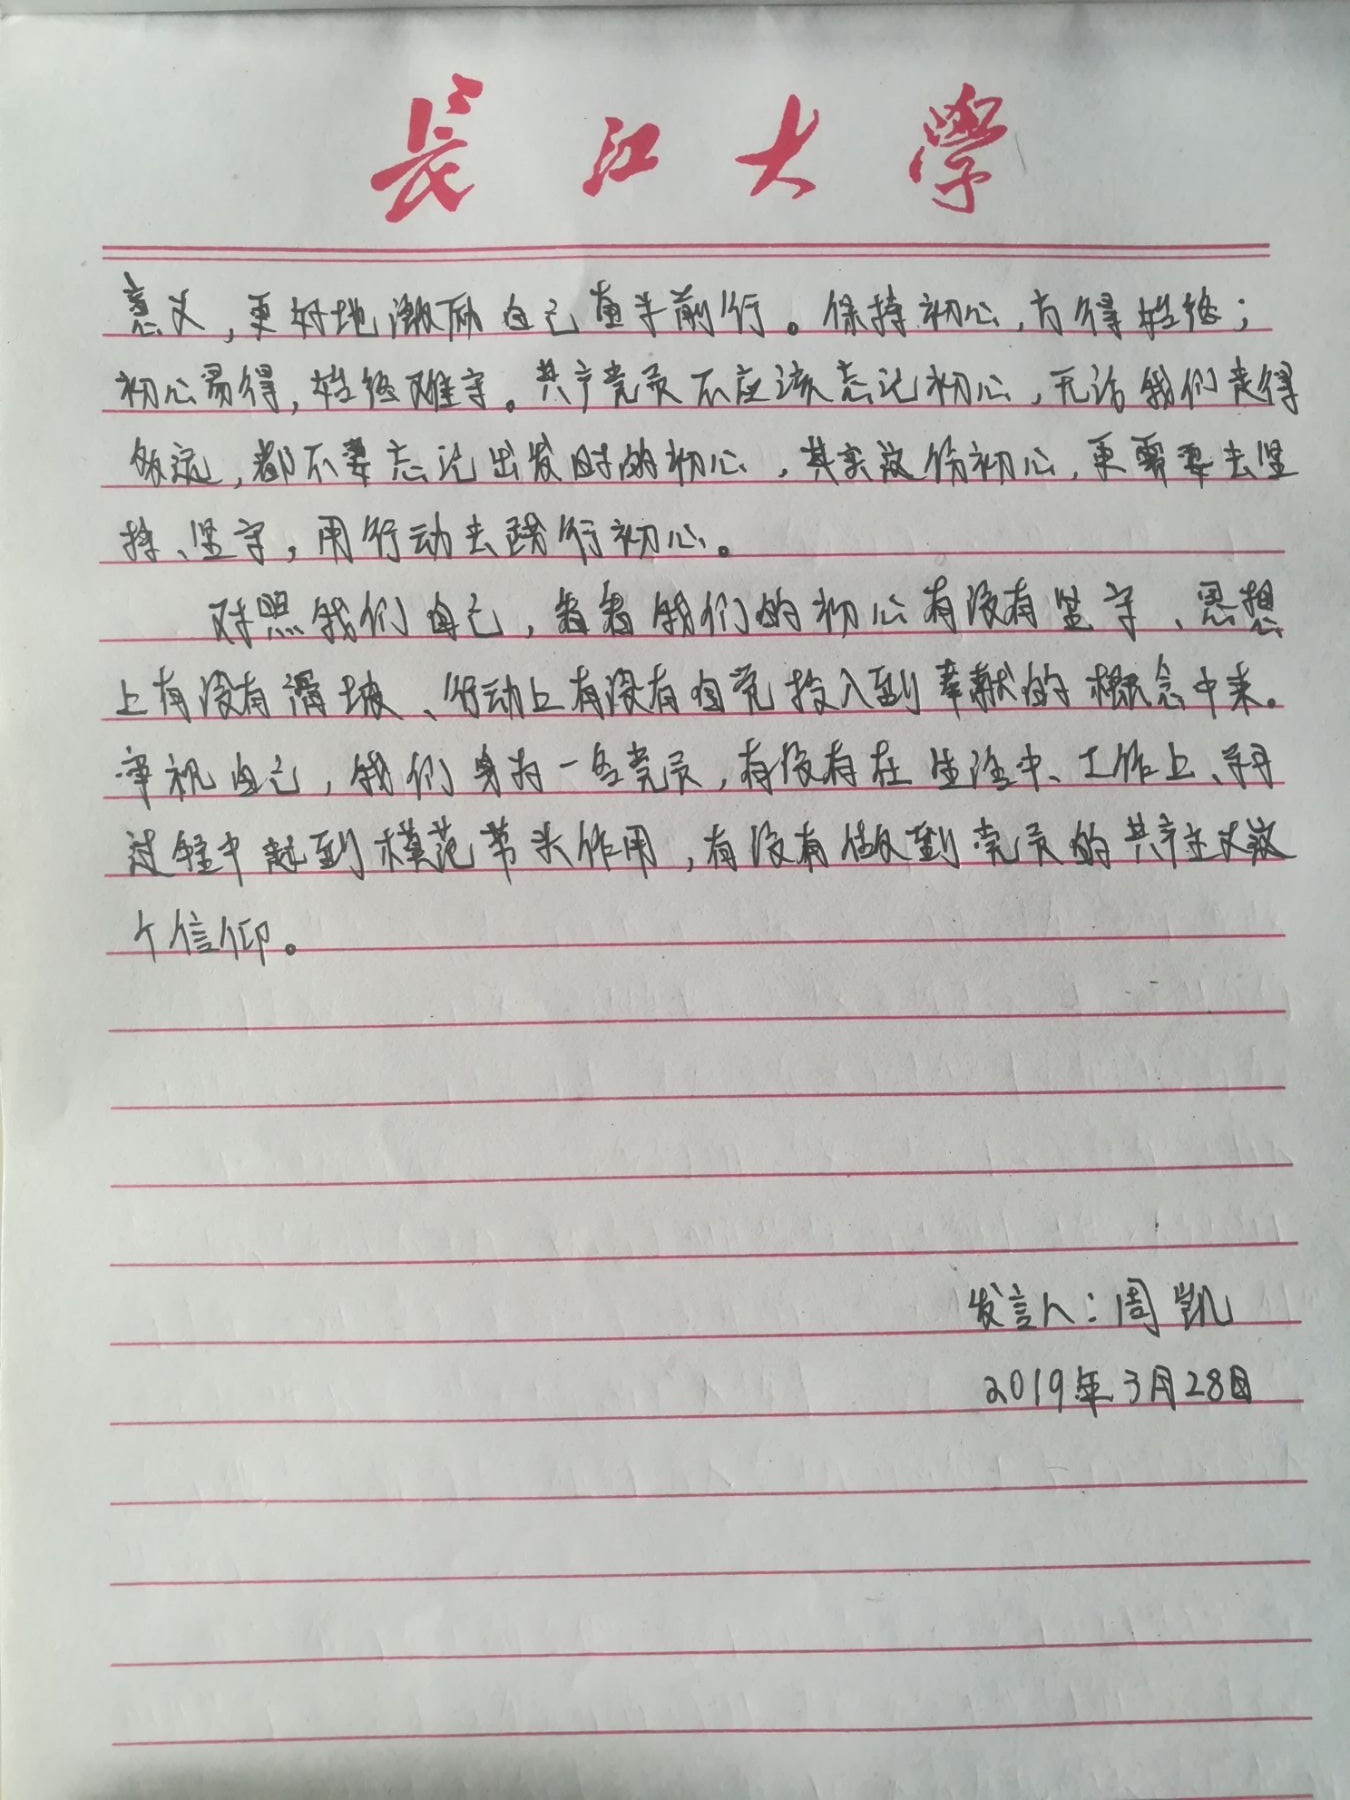 長江大學
意义，更好地激励自己奋斗前行。保持初心，方得始终；
初心易得，始终难守。共产党员不应该忘记初心，无论我们走得
多远，都不要忘记出发时的初心，其实这份初心，更需要去坚
持、坚守，用行动去践行初心。
对照我们自己，看看我们的初心有没有坚守、思想
上有没有滑坡、行动上有没有自觉投入到奉献的概念中来。
审视自己，我们身为一名党员，有没有在生活中、工作上、学习
过程中起到模范带头作用，有没有做到党员的共产主义这
个信仰。
发言人：周凯
2019年3月28日